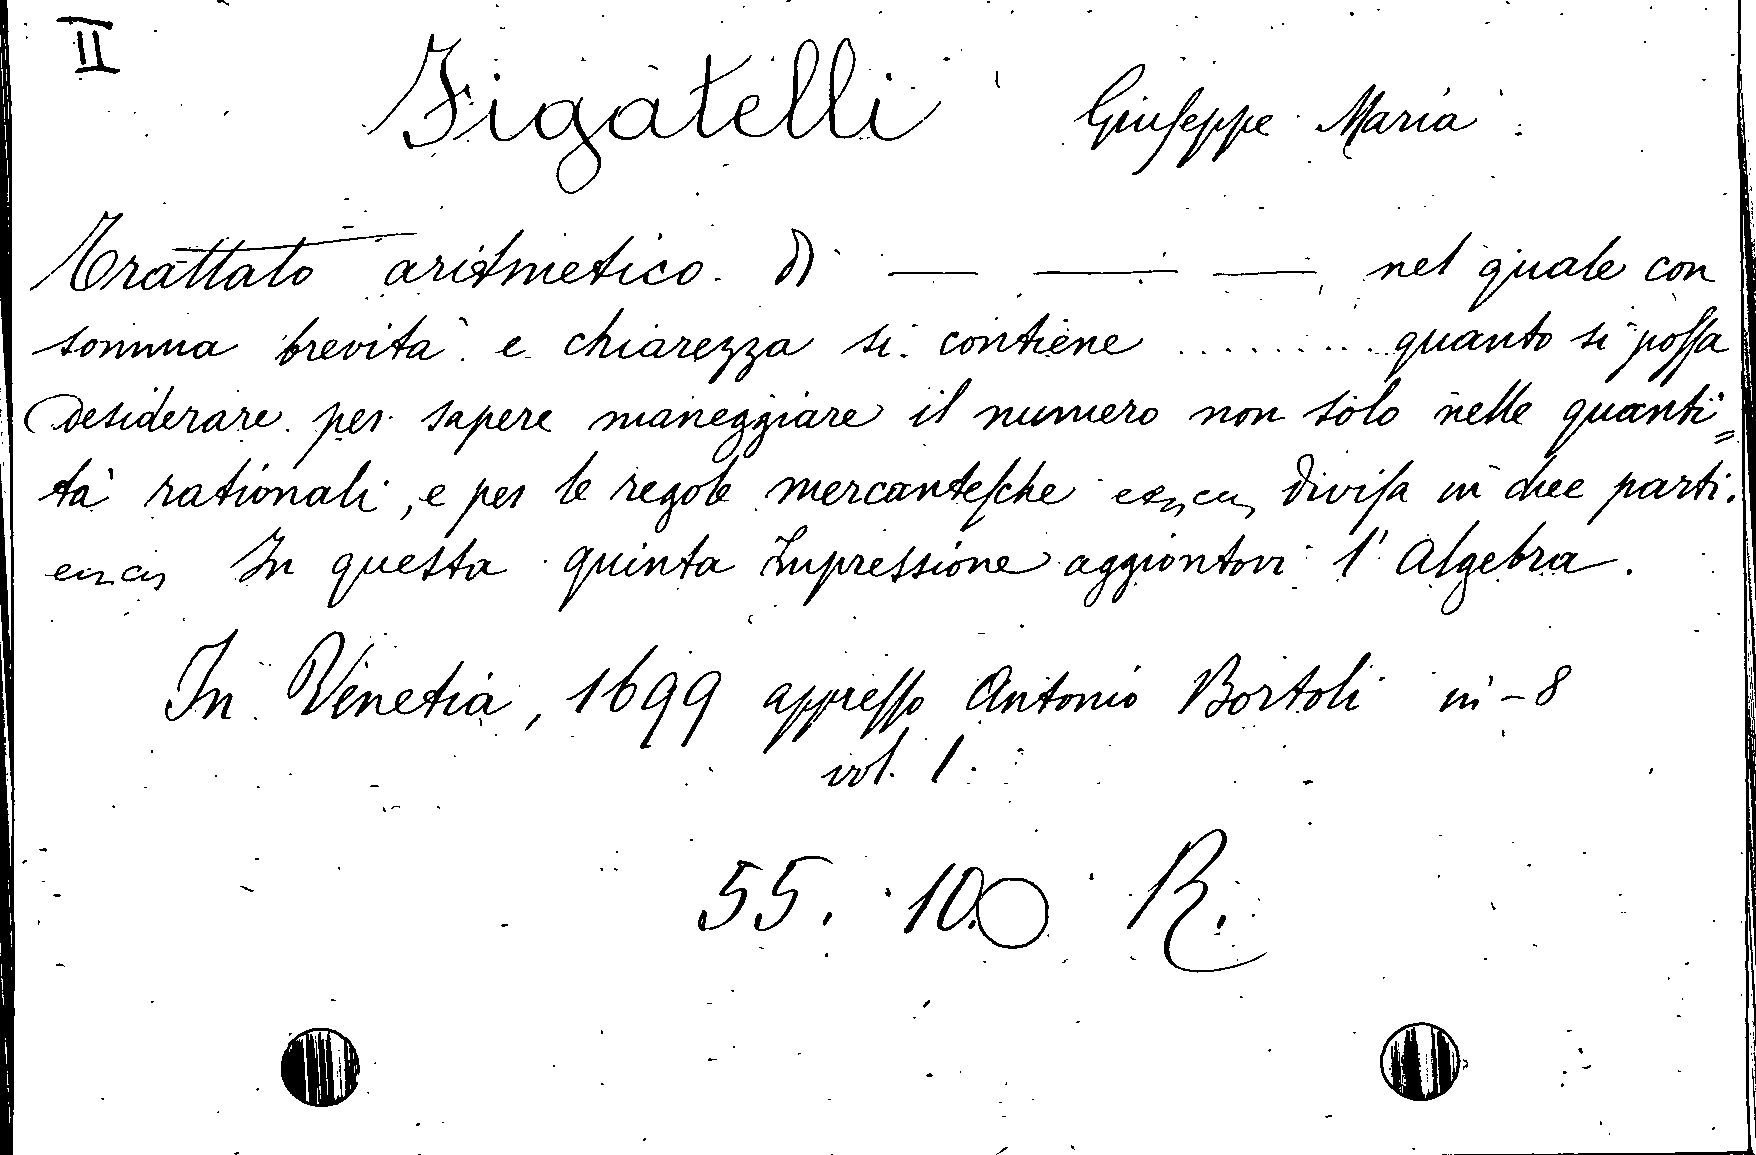 II
Figatelli Giuseppe Maria
Trattato aritmetico di — — — nel quale con
somma brevità e chiarezza si contiene ......... quanto si possa
desiderare per sapere maneggiare il numero non solo nelle quanti=
tà rationali, e per le regole mercantesche divisa in due parti.
In questa quinta Impressione aggiontovi l'Algebra.
In Venetia, 1699 appresso Antonio Bortoli in-8
vol. 1.
55. 10. R.